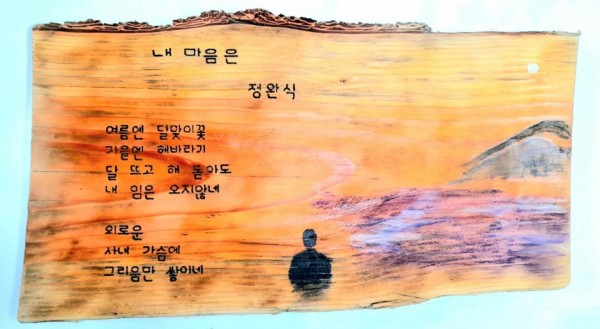 내 마음은
정완식
여름엔 달맞이꽃
가을엔 해바라기
달 뜨고 해 돌아도
내 임은 오지않네
외로운
사내 가슴에
그리움만 쌓이네